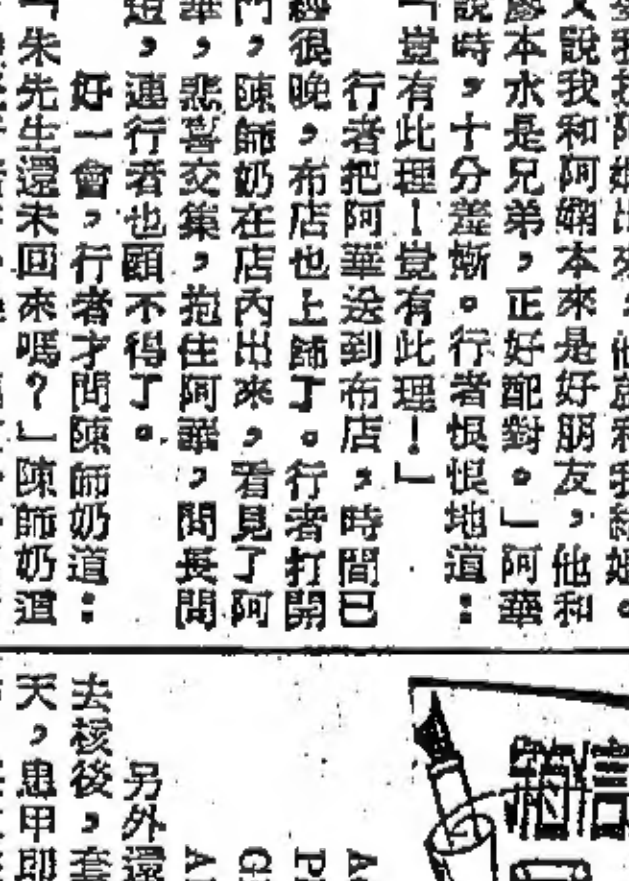 我和阿嫻出來,他
又說我和阿嫻本來是好朋友,他和
廖本水是兄弟,正好配對。」阿華
說時,十分羞慚。行者恨恨地道:
「豈有此理!豈有此理!」
行者把阿華送到布店,時間已
經很晚,布店也上舖了。行者打開
門,陳師奶在店內出來,看見了阿
華,悲喜交集,抱住阿華,問長問
短,連行者也顧不得了。
好一會,行者才問陳師奶道:
「朱先生還未回來嗎?」陳師奶道
信箱
另外還
去核後,套
天,患甲即